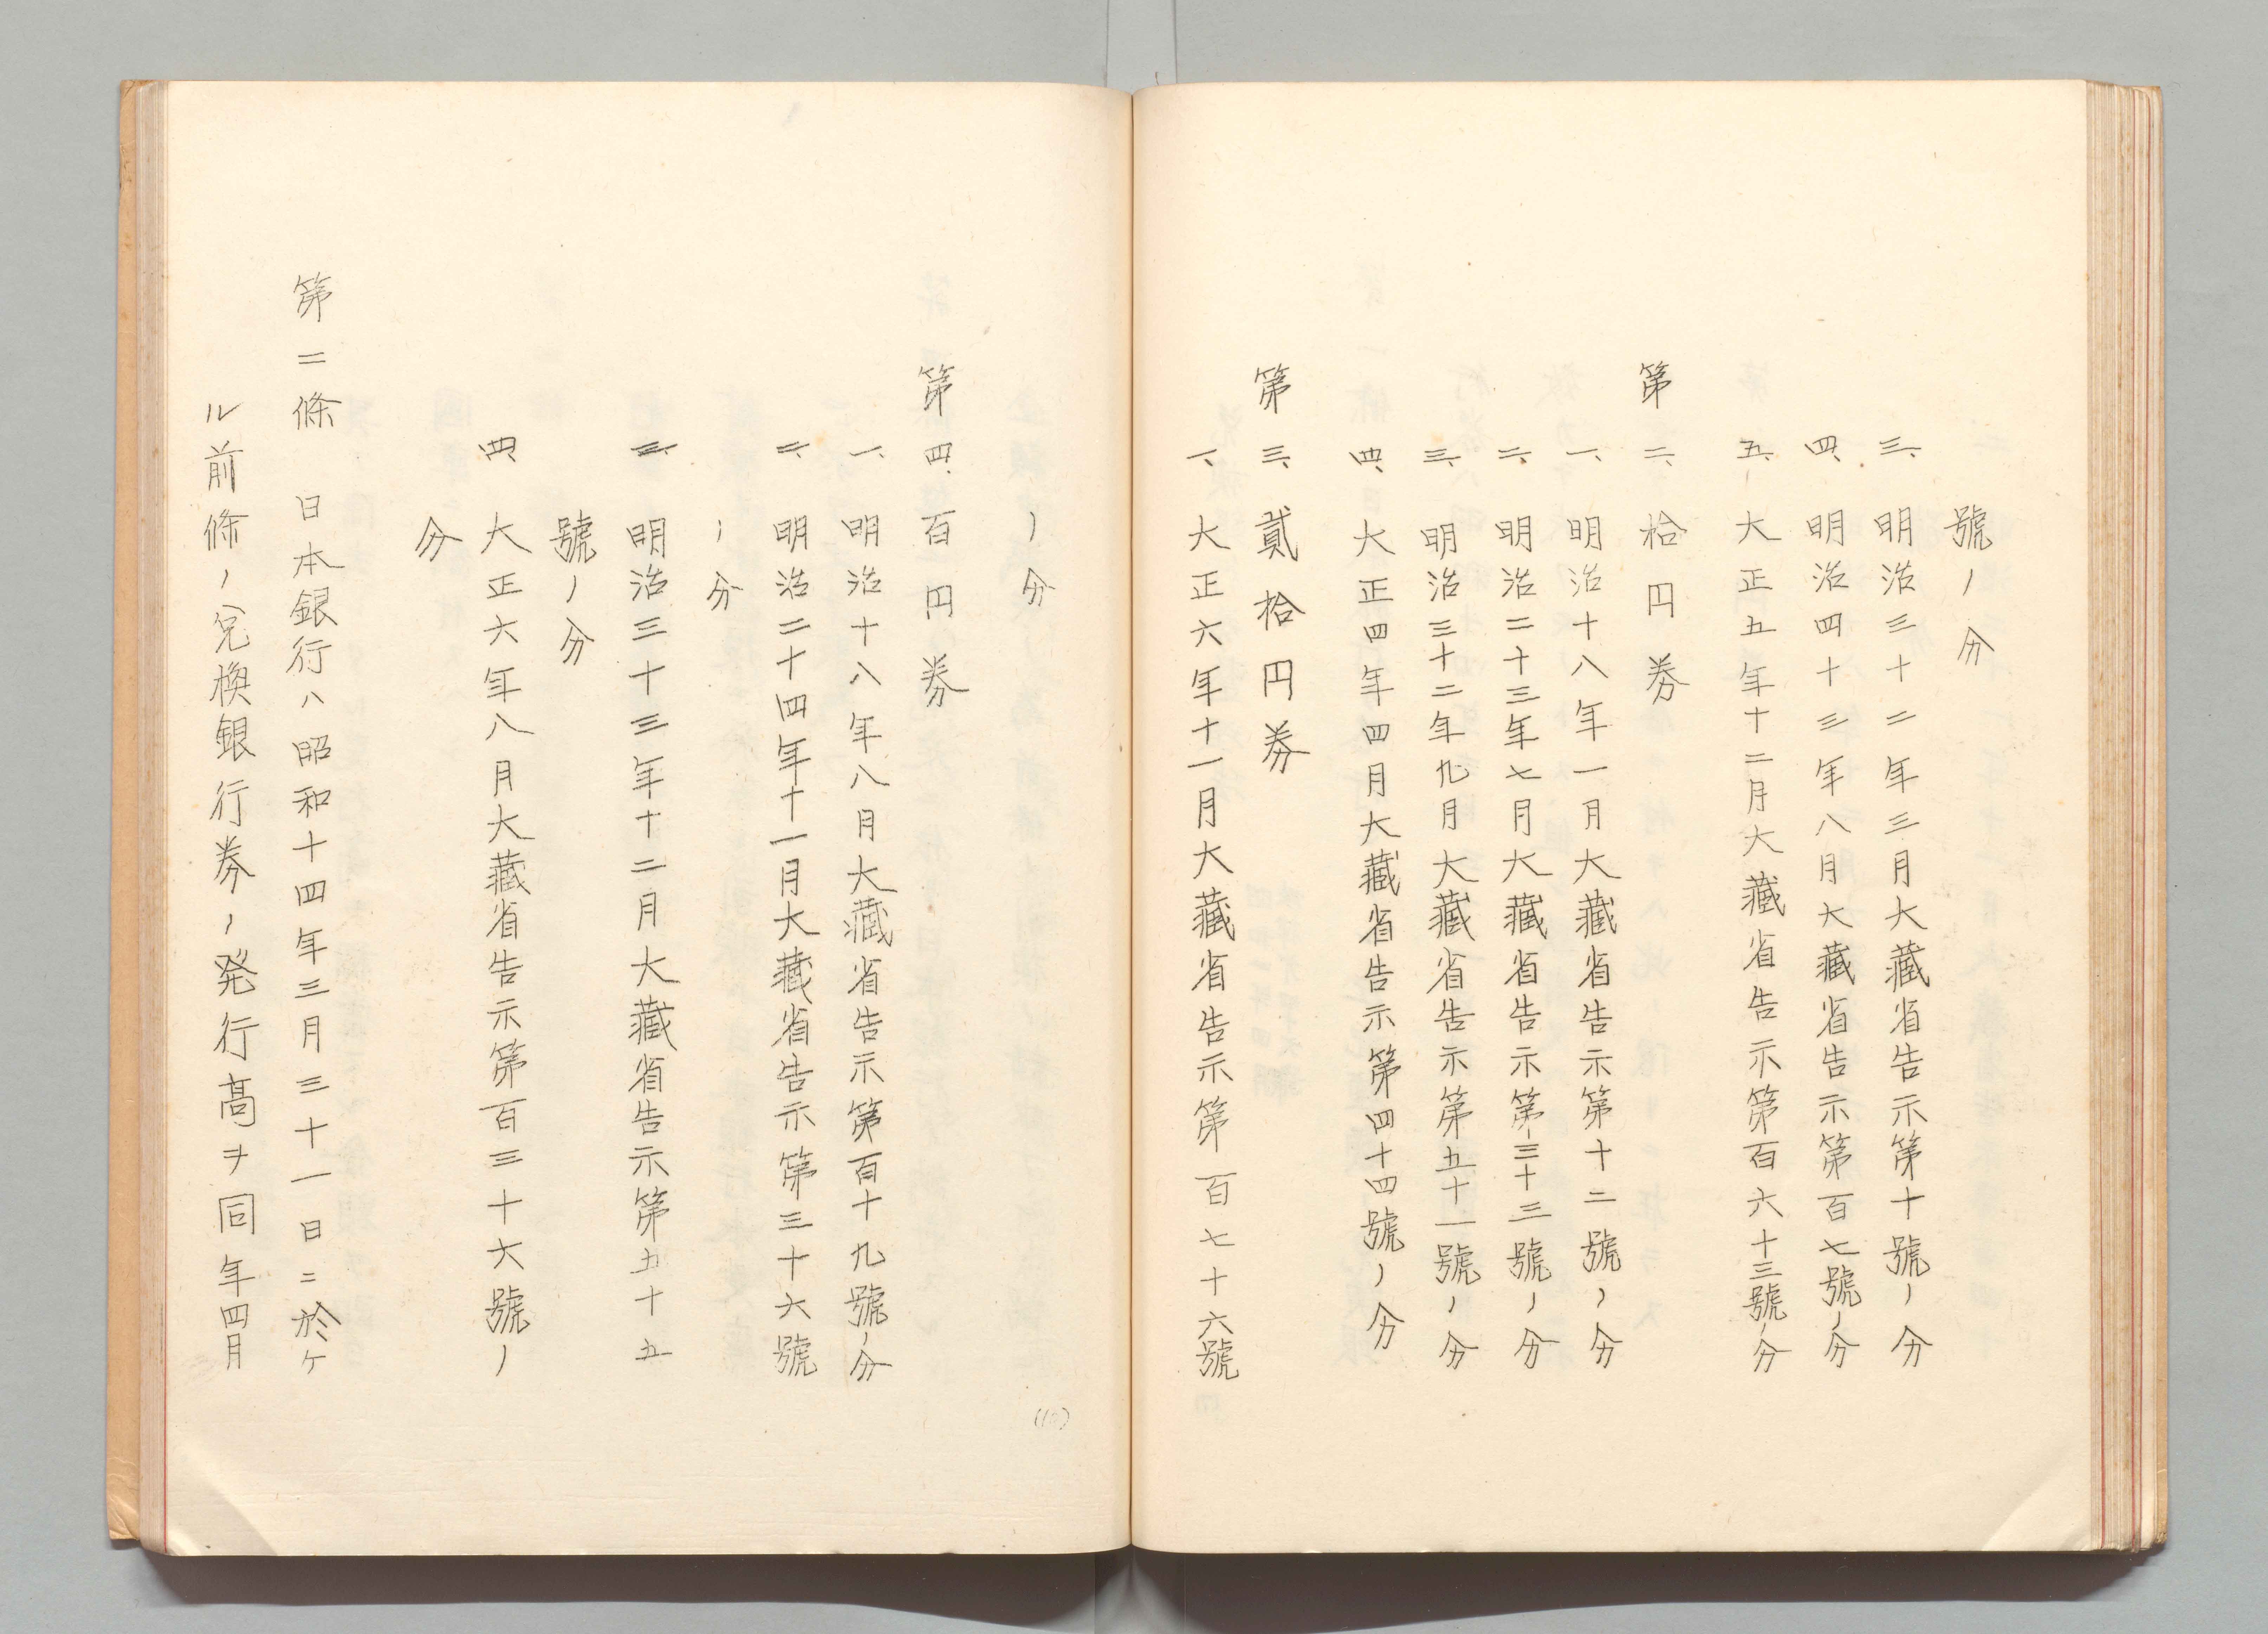 號ノ分
三、明治三十二年三月大藏省告示第十號ノ分
四、明治四十三年八月大藏省告示第百七號ノ分
五、大正五年十二月大藏省告示第百六十三號ノ分
第二、拾円券
一、明治十八年一月大藏省告示第十二號ノ分
二、明治二十三年七月大藏省告示第三十三號ノ分
三、明治三十二年九月大藏省告示第五十一號ノ分
四、大正四年四月大藏省告示第四十四號ノ分
第三、貳拾円券
一、大正六年十一月大藏省告示第百七十六號
ノ分
第四、百円券
一、明治十八年八月大藏省告示第百十九號ノ分
二、明治二十四年十一月大藏省告示第三十六號
ノ分
三、明治三十三年十二月大藏省告示第五十五
號ノ分
四、大正六年八月大藏省告示第百三十六號ノ
分
第二條　日本銀行ハ昭和十四年三月三十一日ニ於ケ
ル前條ノ兌換銀行券ノ発行高ヲ同年四月